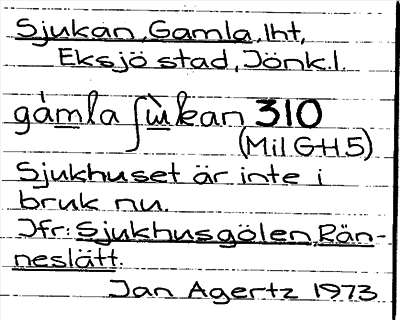 Sjukan, Gamla, lht,
Eksjö stad, Jönk.l.
gàmla ʃù̱kan 310
(Mil GH5)
Sjukhuset är inte i
bruk nu.
Jfr: Sjukhusgölen, Rän-
neslätt.
Jan Agertz 1973